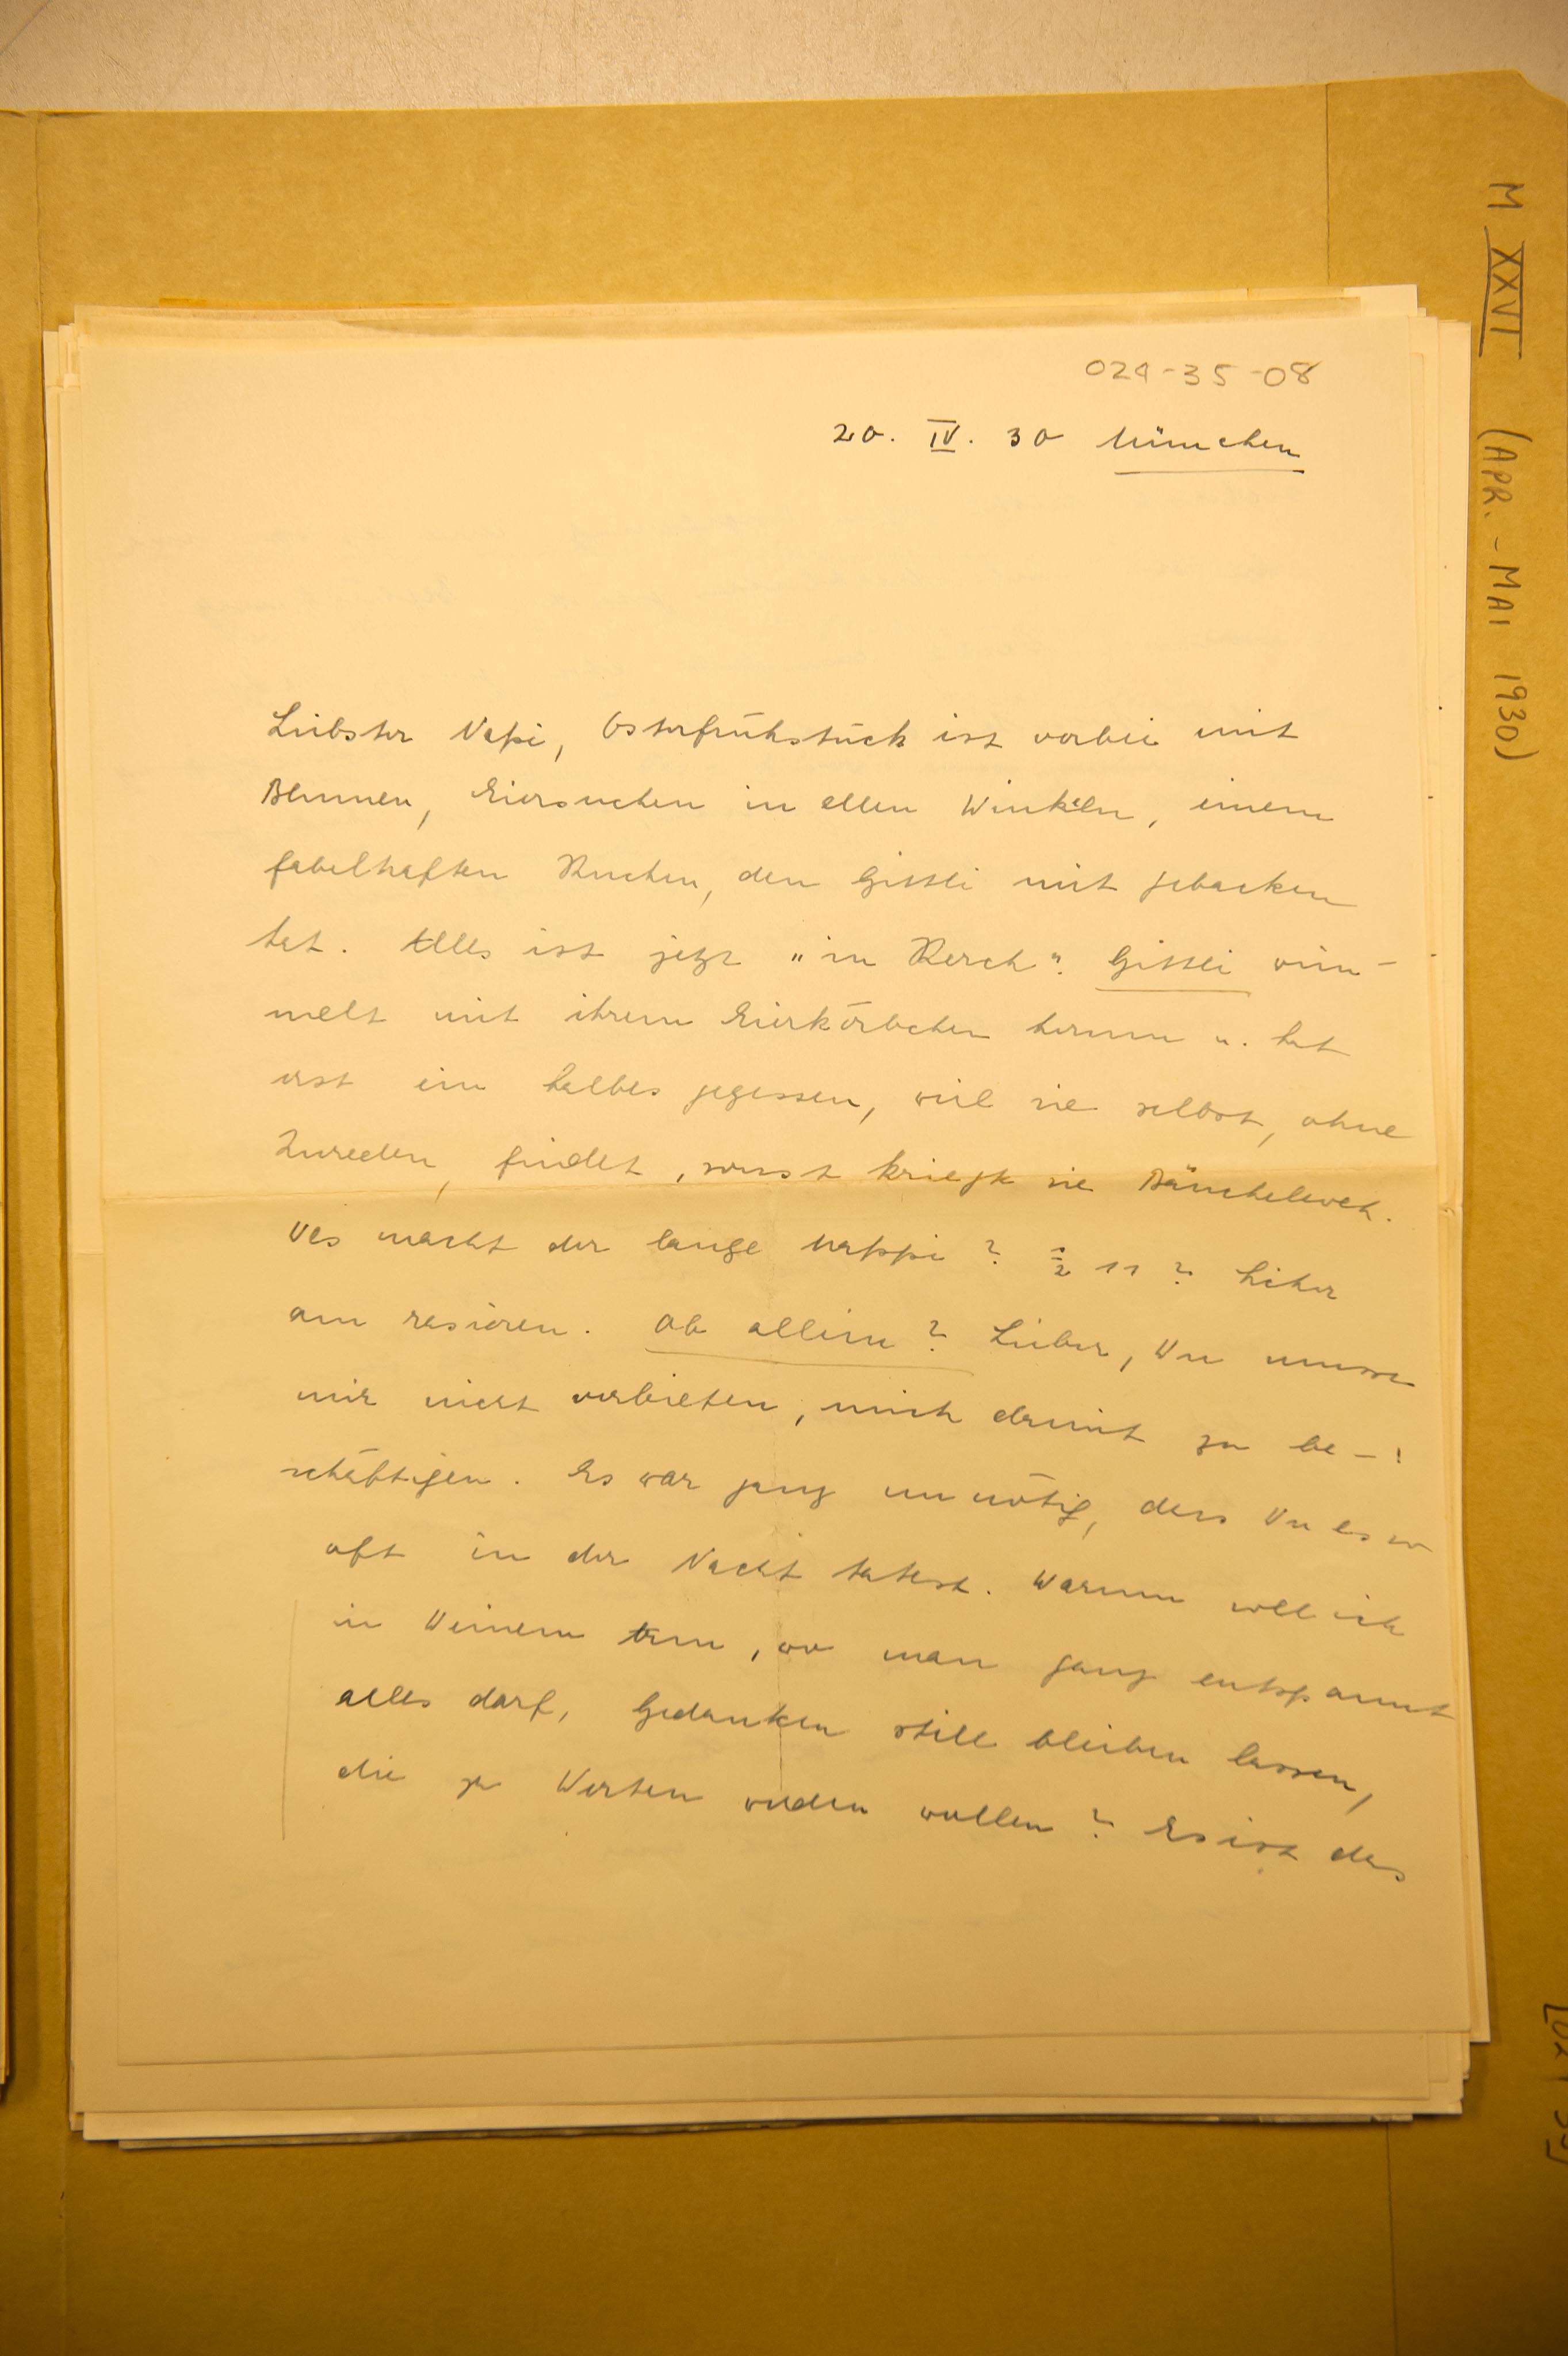 M XXVI (APR. - MAI 1930)
024-35-08
20. IV. 30 München
Liebster Napi, Osterfrühstück ist vorbei mit
Blumen, Eiersuchen in allen Winkeln, einem
fabelhaften Kuchen, den Gittli mit gebacken
hat. Alles ist jetzt "in Kerch". Gittli wim-
melt mit ihrem Eierkörbchen herum u. hat
erst ein halbes gegessen, weil sie selbst, ohne
Zureden, findet, sonst kriegte sie Bäuchelweh.
Was macht der lange Mappi? ½ 11? Sicher
am rasieren. Ob allein? Lieber, Du musst
mir nicht verbieten, mich damit zu be-!
schäftigen. Es war ganz unnötig, dass Du es so
oft in der Nacht tatest. Warum soll ich
in Deinem Arm, wo man ganz entspannt
alles darf, Gedanken still bleiben lassen,
die zu Worten werden wollen? Es ist das